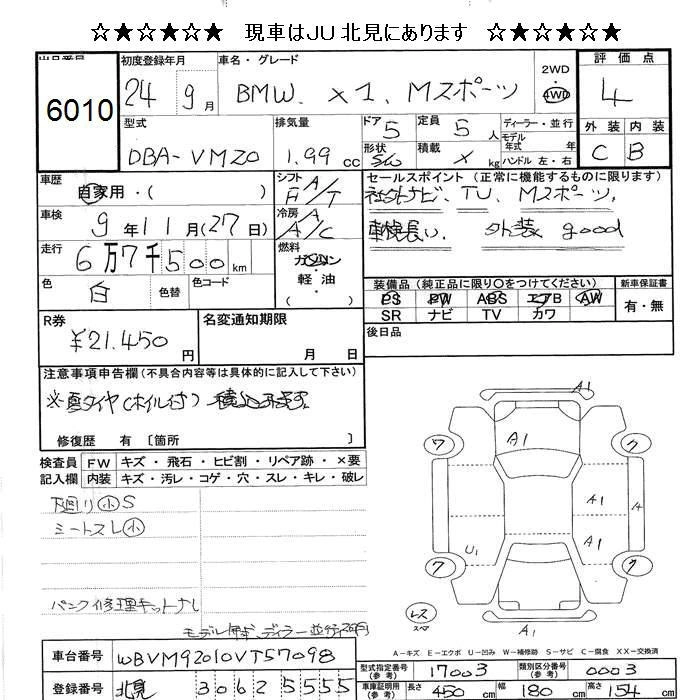 ☆★☆★☆★☆ 現車はJU北見にあります ☆★☆★☆★☆
出品番号
6010
初度登録年月
24 9月
車名・グレード
BMW. X1. Mスポーツ
2WD
4WD
評価点
4
外装 内装
C B
型式
DBA-VM20
排気量
1.99 cc
ドア 5
形状 SW
定員 5 人
積載 X kg
ディーラー・並行
モデル
年式 年
ハンドル 左・右
車歴
自家用・( )
シフト
F A/T
セールスポイント(正常に機能するものに限ります)
社外ナビ、TV、Mスポーツ、
車検長い、 外装 good
車検
9年11月(27日)
冷房
A/C
走行
6万7千500km
燃料
ガソリン
軽油
色
白
色替
色コード
装備品(純正品に限り○をつけてください)
PS PW ABS エアB AW
SR ナビ TV カワ
新車保証書
有・無
後日品
R券
¥21.450 円
名変通知期限
月 日
注意事項申告欄(不具合内容等は具体的に記入して下さい)
※夏タイヤ(ホイル付)積込みます。
修復歴 有〔箇所 〕
検査員 FW キズ・飛石・ヒビ割・リペア跡・×要
記入欄 内装 キズ・汚レ・コゲ・穴・スレ・キレ・破レ
下廻り小S
シートスレ小
パンク修理キットナシ
A1
ワ
A1
ワ
A1
A
U1
A1
ワ
ワ
レス
スペア
A1
A-キズ E-エクボ U-凹み W-補修跡 S-サビ C-腐食 XX-交換済
車台番号 WBVM92010VT57098
型式指定番号(参考) 17003
類別区分番号(参考) 0003
登録番号 北見 30625555
車庫証明用(参考) 長さ 450 cm 幅 180 cm 高さ 154 cm